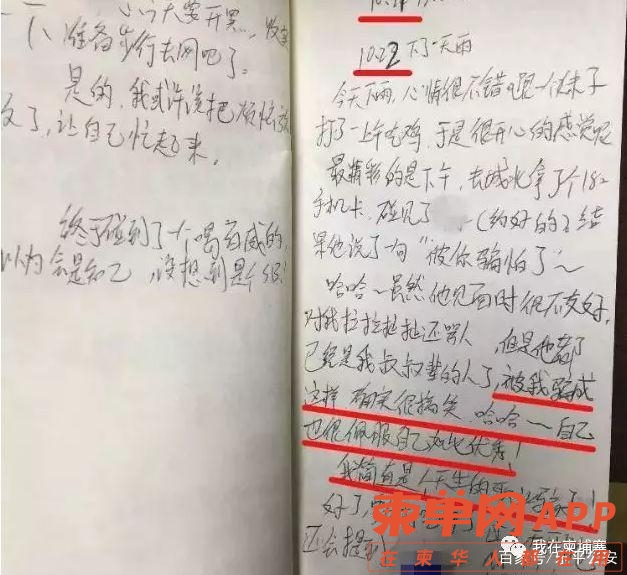 准备步行去网吧了。
是的,我或许该把烦恼放
文了,让自己忙起来。
终于碰到了一个喝百威的,
以为会是知己,没想到是个
10.22 下了一天雨
今天下雨,心情很不错 跟一个妹子
打了一上午吃鸡,于是很开心的感觉呢
最精彩的是下午,去城北拿了个182
手机卡,碰见了 (约好的)结
果他说了一句“被你骗怕了”~
哈哈~虽然他见面时很不友好,
对我拉拉扯扯还骂人,但是他都
已经是我叔叔辈的人了,被我骗成
这样 确实很搞笑,哈哈~自己
也很佩服自己如此优秀!
我简直是个天生的
好了,
还会提到
柬单网APP
在柬华人
我在柬埔寨
百家号/